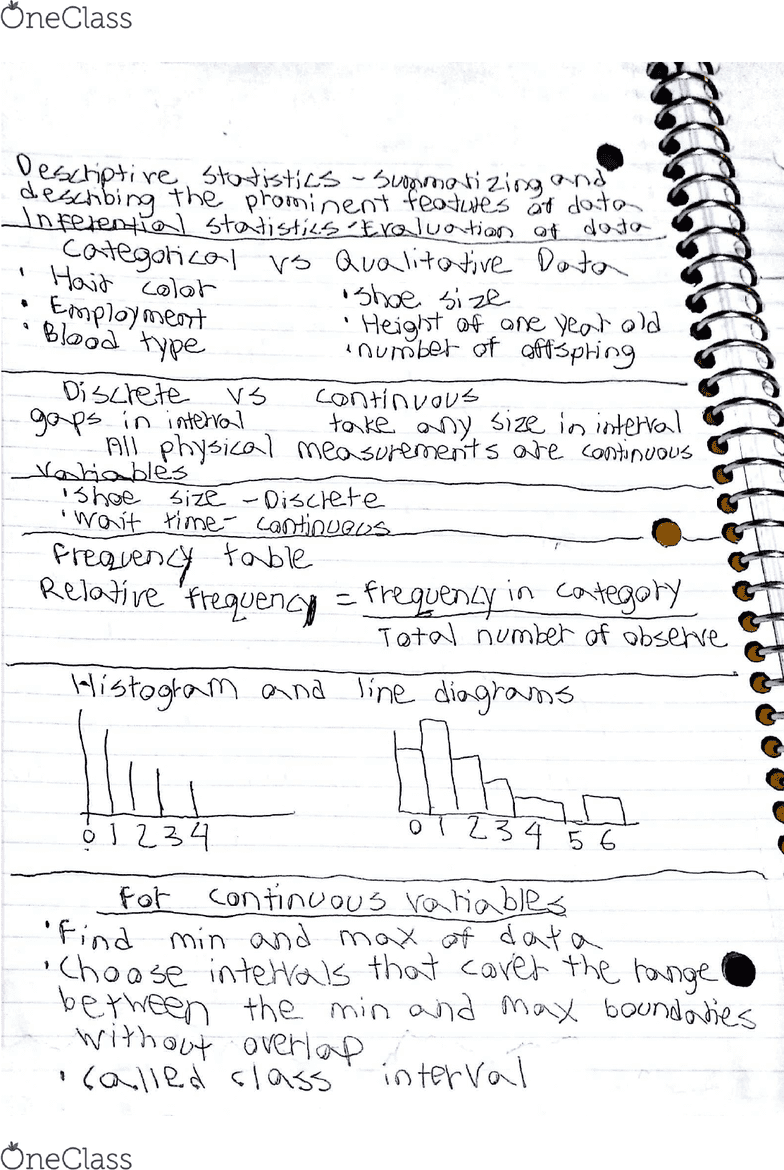 OneClass
Descriptive statistics - summarizing and
describing the prominent features of data
Inferential statistics - Evaluation of data
Categorical vs Qualitative Data
• Hair color
• Shoe size
• Employment
• Height of one year old
• Blood type
• number of offspring
Discrete vs continuous
gaps in interval take any size in interval
All physical measurements are continuous
variables
• Shoe size - Discrete
• Wait time - continuous
Frequency table
Relative frequency = frequency in category
Total number of observe
Histogram and line diagrams
0 1 2 3 4
0 1 2 3 4 5 6
For continuous variables
• Find min and max of data
• Choose intervals that cover the range
between the min and max boundaries
without overlap
• Called class interval
OneClass